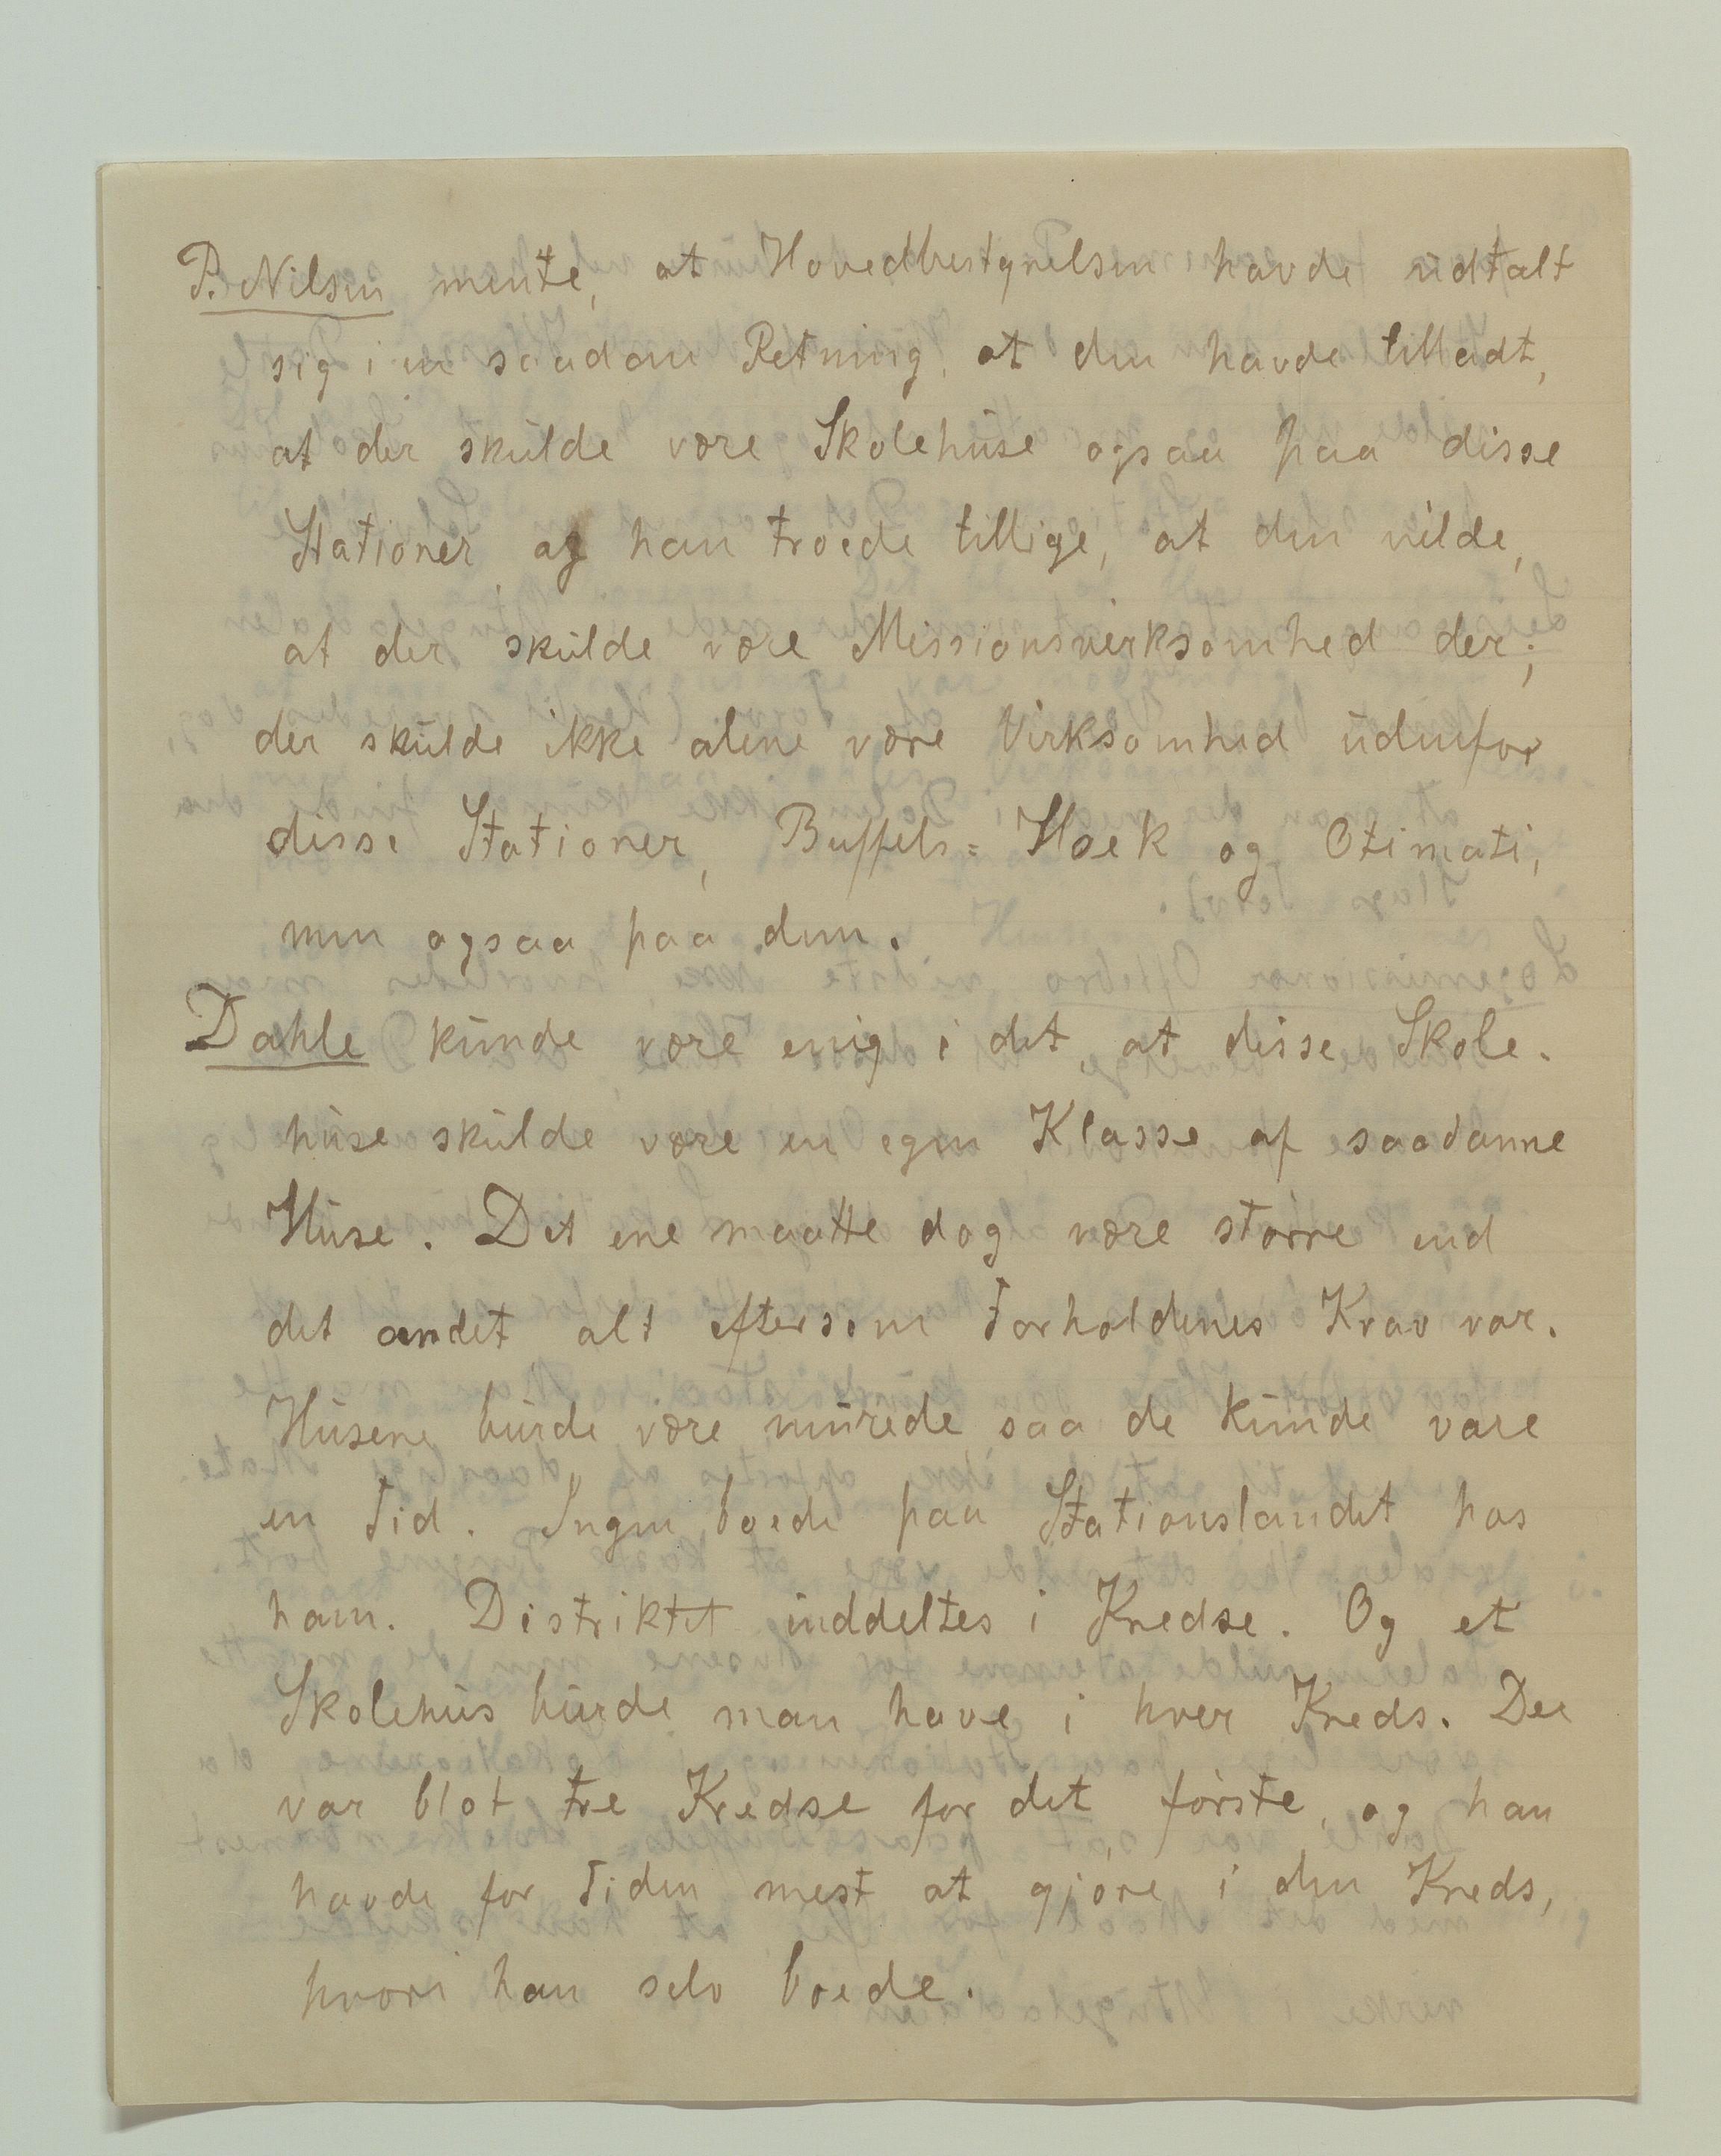 P. Nilsen mente, at Hovedbestyrelsen havde udtalt
sig i en saadan Retning, at den havde tilladt,
at der skulde være Skolehuse ogsaa paa disse
Stationer, og han troede tillige, at den vilde,
at der skulde være Missionsvirksomhed der;
der skulde ikke alene være Virksomhed udenfor
disse Stationer, Buffels=Hoek og Otimati,
men ogsaa paa dem.
Dahle kunde være enig i det, at disse Skole-
huse skulde være en egen Klasse af saadanne
Huse. Det ene maatte dog være større end
det andet alt eftersom Forholdenes Krav var.
Husene burde være murede, saa de kunde vare
en Tid. Ingen boede paa Stationslandet hos
ham. Distriktet inddeltes i Kredse. Og et
Skolehus burde man have i hver Kreds. Der
var blot tre Kredse for det første, og han
havde for Tiden mest at gjøre i den Kreds,
hvori han selv boede.